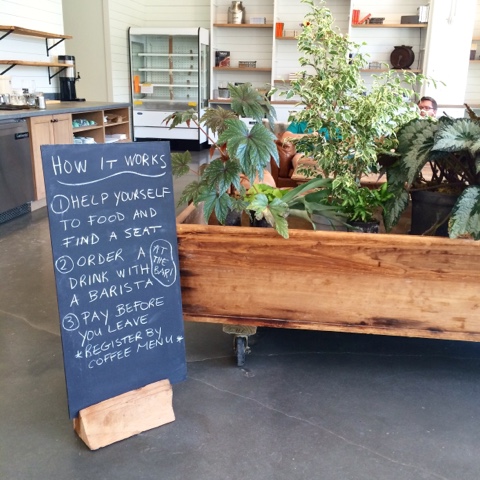 HOW IT WORKS
① HELP YOURSELF
TO FOOD AND
FIND A SEAT
② ORDER A
DRINK WITH
A BARISTA
AT
THE
BAR!
③ PAY BEFORE
YOU LEAVE
*REGISTER BY
COFFEE MENU*